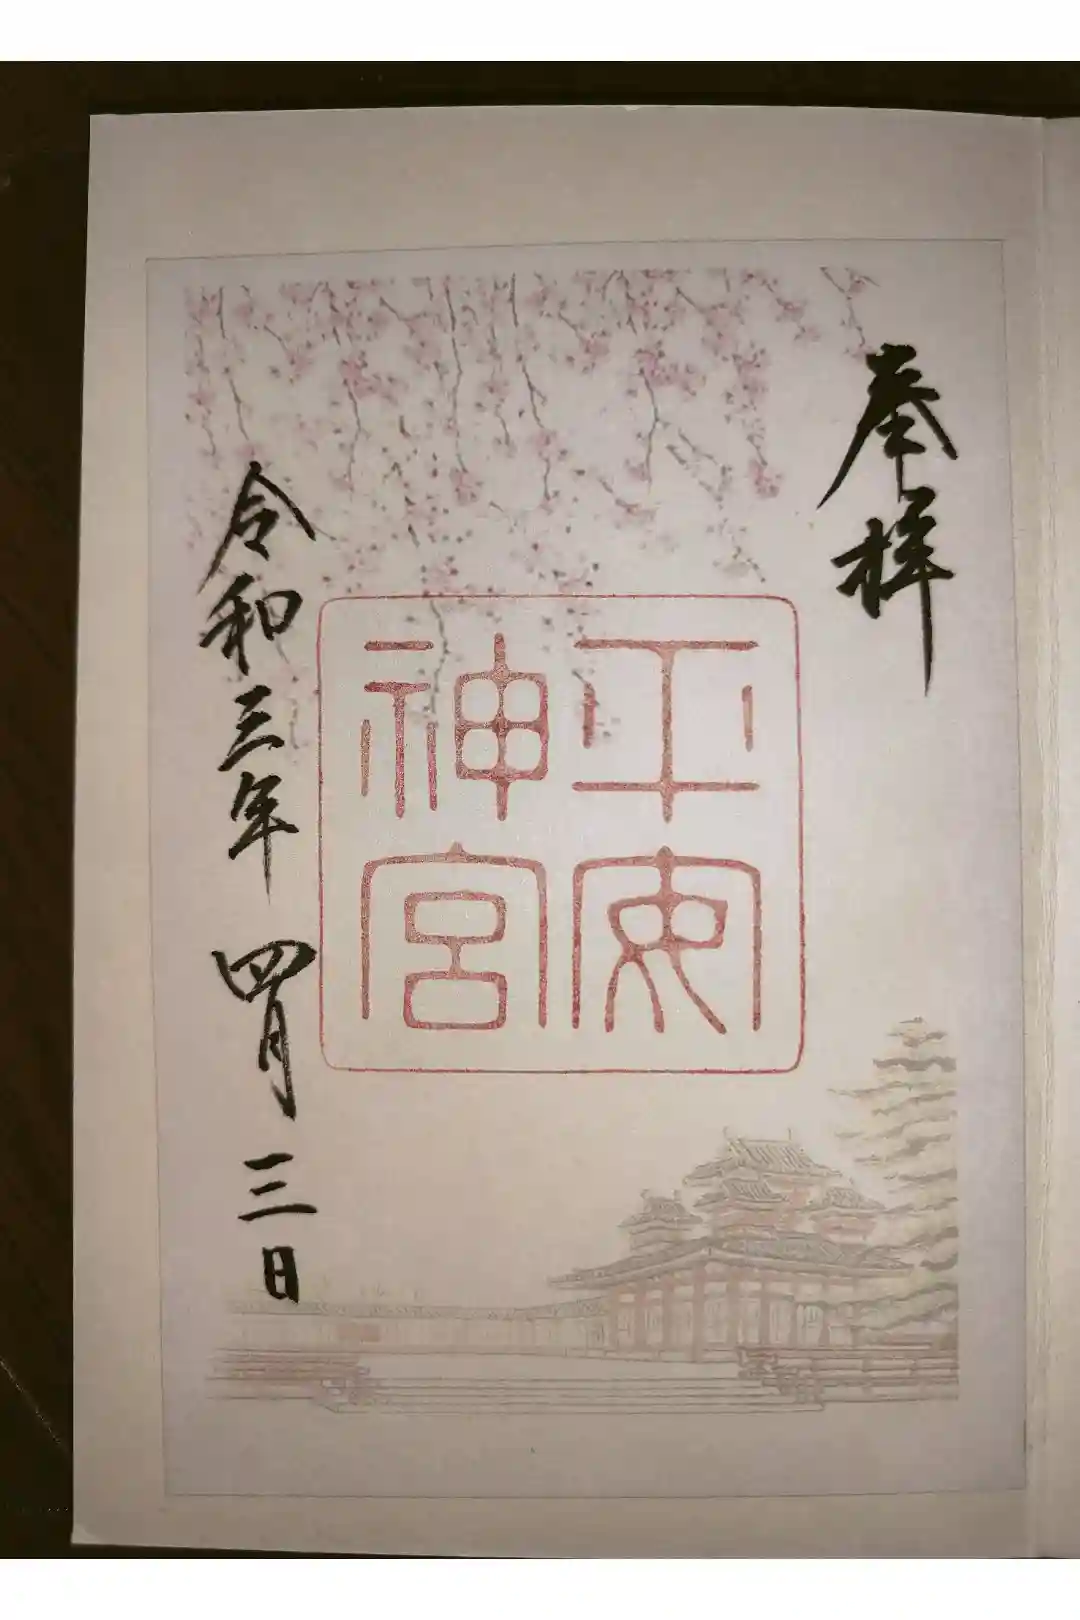 奉拝
平安
神宮
令和三年四月三日